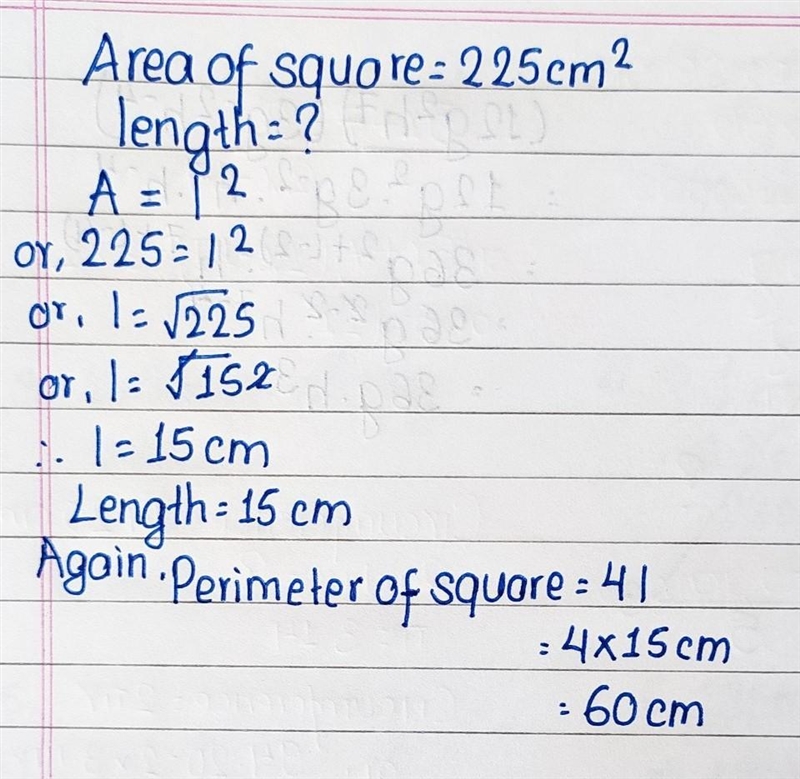 Area of square = 225cm²
length = ?
A = l²
or, 225 = l²
or, l = √225
or, l = √152
∴ l = 15 cm
Length = 15 cm
Again, Perimeter of square = 4l
= 4×15cm
= 60 cm